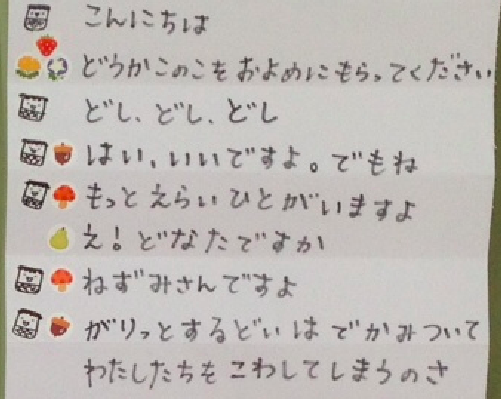 こんにちは
どうかこのこを およめにもらってください
どし、どし、どし
はい、いいですよ。でもね
もっと えらい ひとが いますよ
え！どなたですか
ねずみさんですよ
がりっとするどい は でかみついて
わたしたちを こわしてしまうのさ